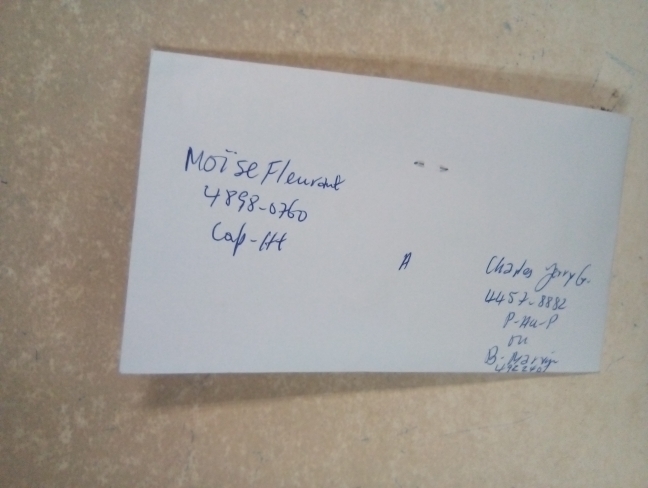 Moïse Fleurant
4898-0760
Cap-Ht
A
Charles Jerry G.
4457-8882
P-Au-P
ou
B-